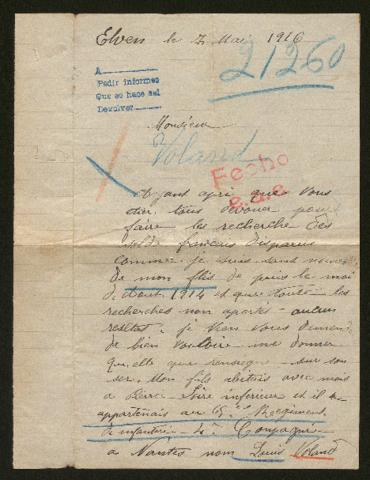 Elven le 3 Mai 1916
21260
A
Pedir informes
Que se hace del
Devolver
Monsieur
Voland
Fecho
Ayant apri que Vous
etes tous devoué pour
faire les recherche des
soldat francais disparus
comme je suis sans nouvelle
de mon fils depuis le moi
d'aout 1914 et que toute les
recherches non aportés aucun
resultat. je Viens Vous demander
de bien Vouloire me donner
quelle que renseigne sur son
ser. Mon fils abitais avec mois
a Loire inferieure et il
appartenais au 65e Regiment
d'infanterie 4e Compagnie
a Nantes nom Louis Voland